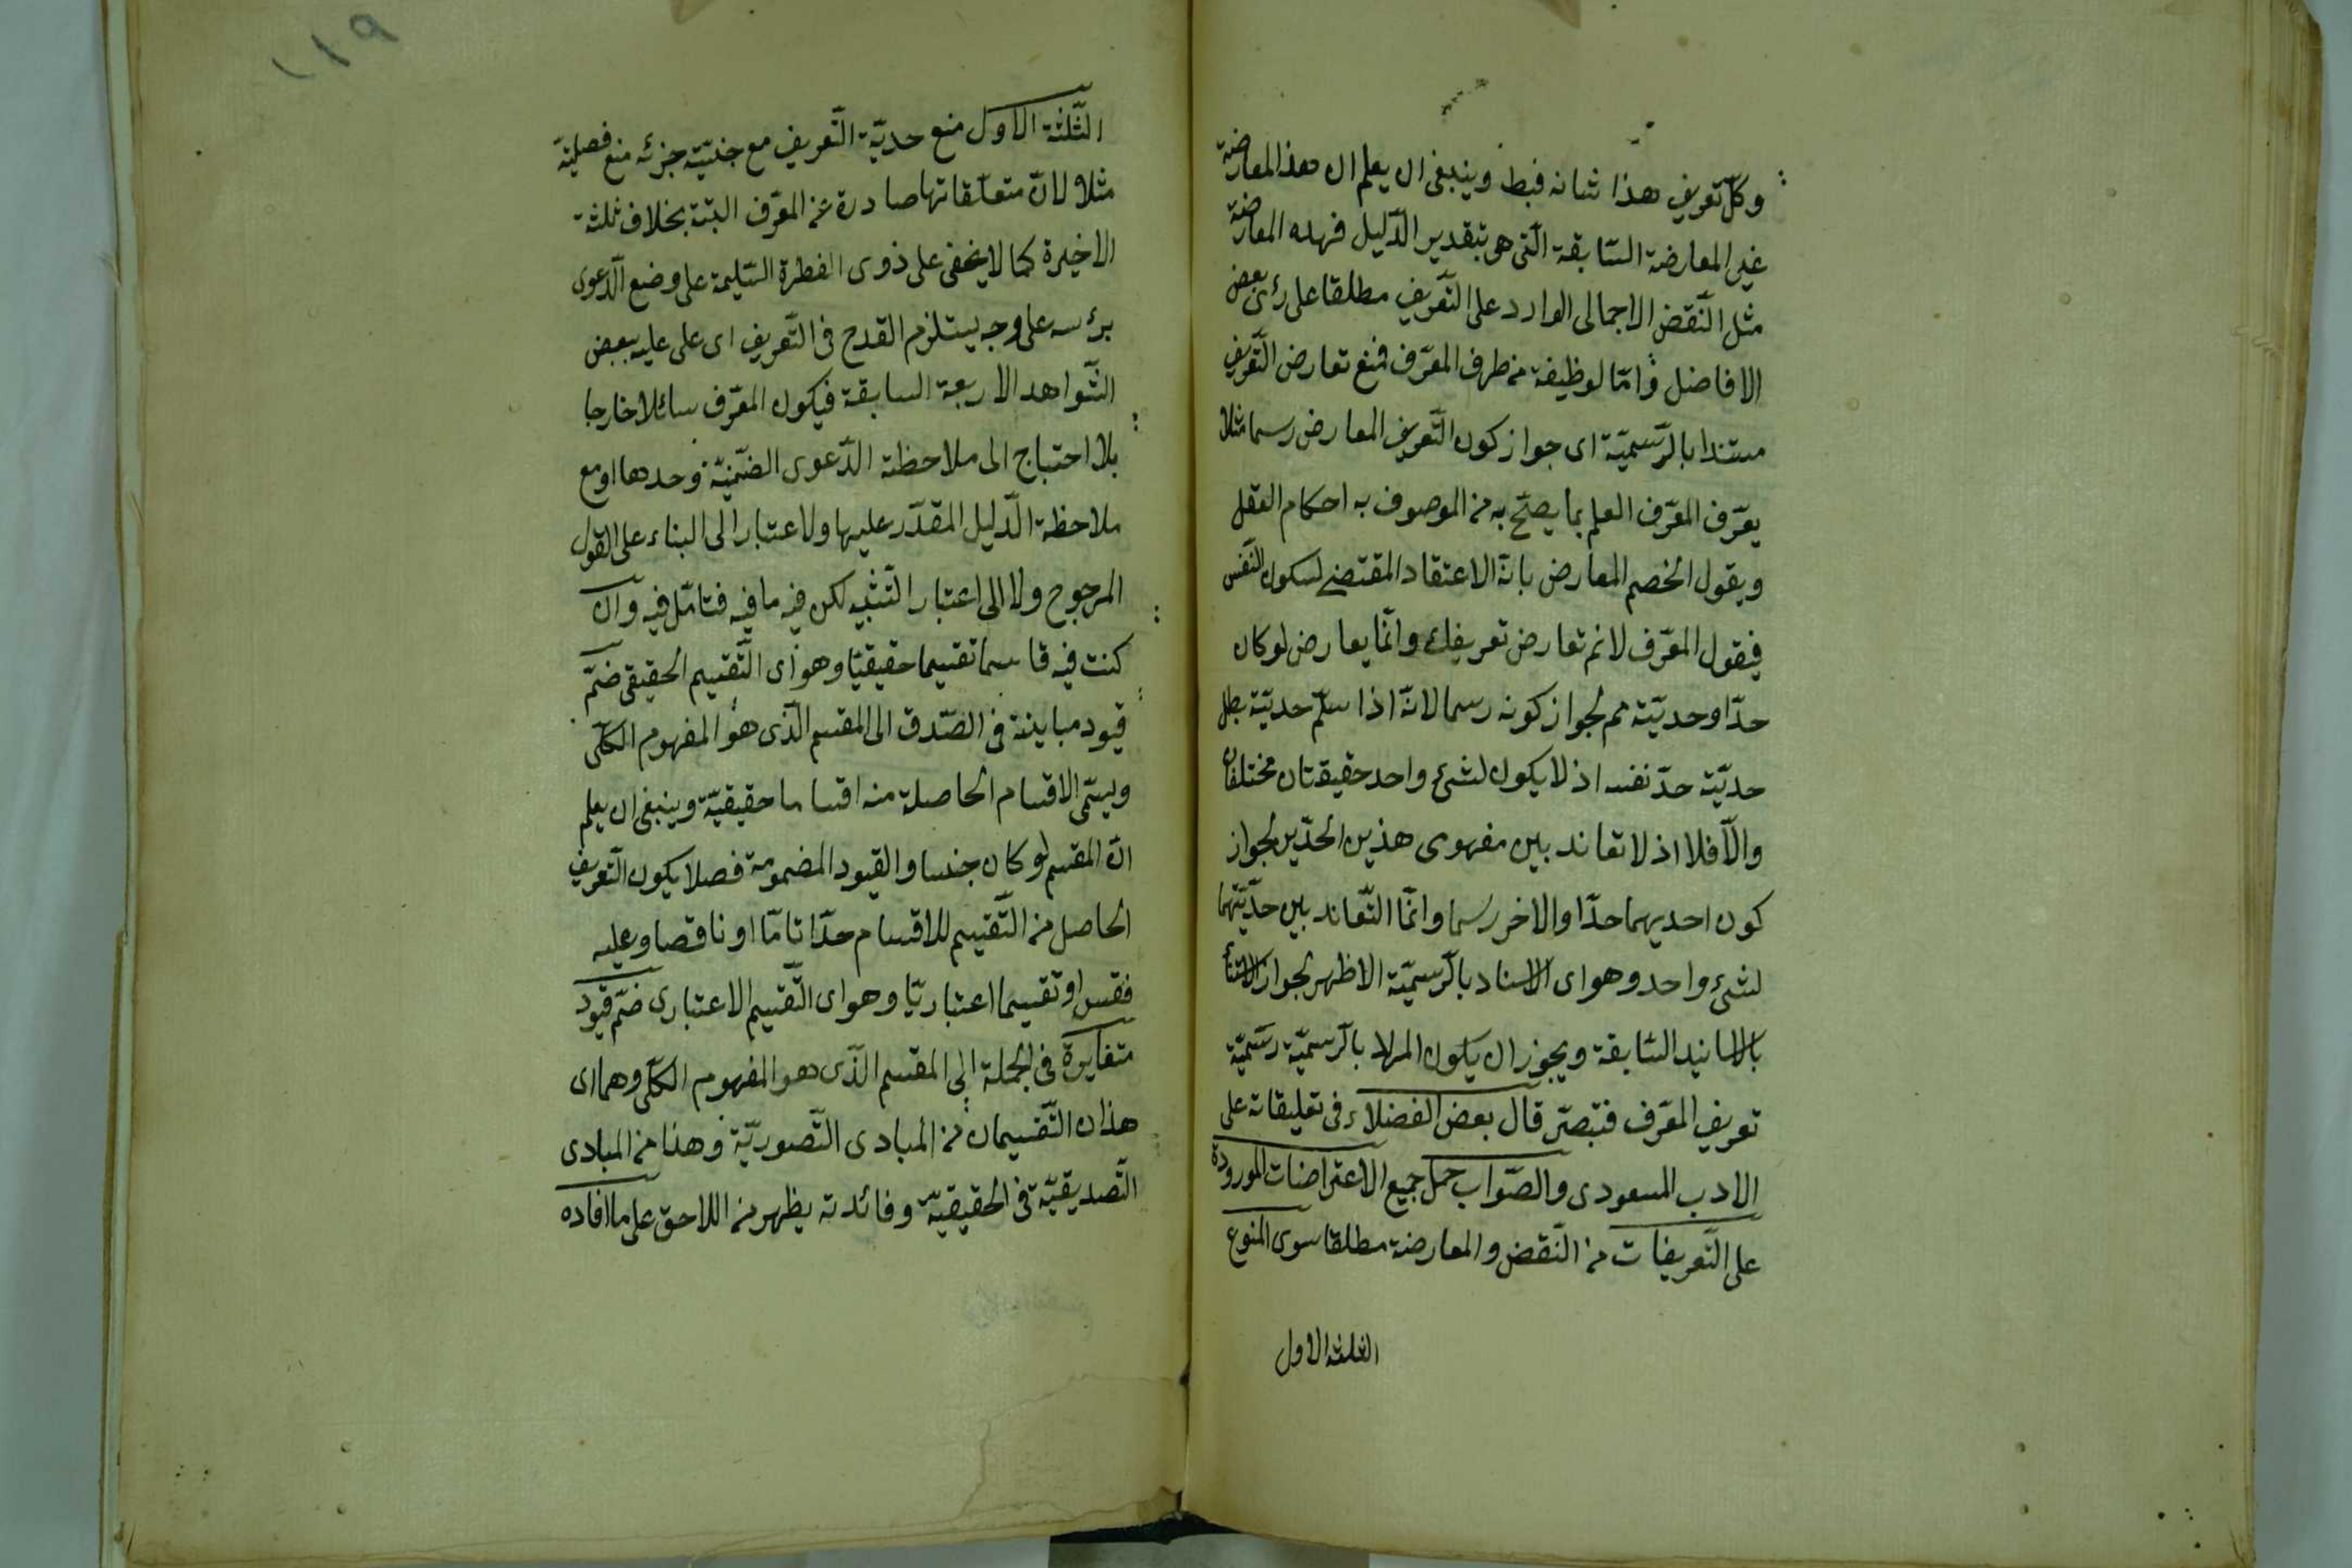 وكل تعريف هذا شانه فبط وينبغى ان يعلم ان هذا المعارضة
غير المعارضة السّابقة الّتى هى بتقدير الدّليل فهده المعارضة
مثل النّقض الاجمالى الوارد على التّعريف مطلقا على رئى بعض
الافاضل وامّا لوظيفة من طرف المعرّف فمنع تعارض التّعريف
مستندا بالرّسميّة اى جواز كون التّعريف المعارض رسما مثلا
يعرّف المعرّف العلم بما يصحّ به من الموصوف به احكام العقل
ويقول الخصم المعارض بانّه الاعتقاد المقتضى لسكون النّفس
فيقول المعرّف لانم تعارض تعريفك وانّما يعارض لوكان
حدّا وحديّته مم لجواز كونه رسما لانّه اذا سلّم حديّته بطل
حديّة حدّ نفسه اذ لا يكون لشئ واحد حقيقتان مختلفان
والّا فلا اذ لا تعاند بين مفهومى هذين الحدّين لجواز
كون احديهما حدّا والاخر رسما وانّما التّعاند بين حدّيّتهما
لشئ واحد وهو اى الاسناد بالرّسميّة الاظهر لجواز
بالاسانيد السّابقة ويجوز ان يكون المراد بالرّسميّة رسميّة
تعريف المعرّف فتبصّر قال بعض الفضلاء فى تعليقاته على
الادب المسعودى والصّواب حمل جميع الاعتراضات المورودة
على التّعريفات من النّقض والمعارضة مطلقا سوى المنوع
الثلثة الاول
١١٩
الثّلثة الاول منع حديّة التّعريف مع جنسيّته جزئه منع فصليّته
مثلا لانّ متعلّقاتها صادرة عن المعرّف البتّة بخلاف ثلثة
الاخيرة كما لا يخفى على ذوى الفطرة السّليمة على وضع الدّعوى
برئسه على وجه يستلزم القدح فى التّعريف اى على عليه ببعض
الشّواهد الاربعة السابقة فيكون المعرّف سائلا خارجا
بلا احتياج الى ملاحظة الدّعوى الضّمنيّة وحدها او مع
ملاحظة الدّليل المقدّر عليها ولا عتبار الى البناء على القول
المرجوح ولا الى اعتبار التّشبيه لكن فيه ما فيه فتامّل فيه وان
كنت فيه قاسما تقسيما حقيقيّا وهو اى التّقسيم الحقيقى ضمّ
قيود مباينة فى الصّدق الى المقسم الّذى هو المفهوم الكلّى
ويسمّى الاقسام الحاصلة منه اقساما حقيقيّة وينبغى ان يعلم
انّ المقسم لو كان جنسا والقيود المضمومة فصلا يكون التّعريف
الحاصل من التّقسيم للاقسام حدّا تامّا او ناقصا وعليه
فقس او تقسيما اعتباريّا وهو اى التّقسيم الاعتبارى ضمّ قيود
متغايرة فى الجملة الى المقسم الّذى هو المفهوم الكلّى وهما اى
هذان التّقسيمان من المبادى التّصوريّة وهذا من المبادى
التّصديقيّة فى الحقيقيّة وفائدته يظهر من اللاحق على ما افاده